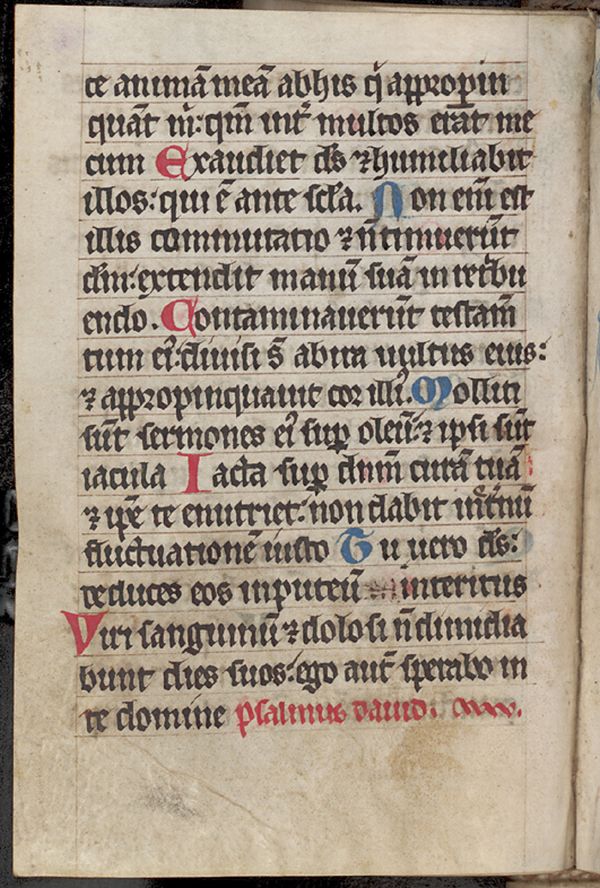 ce animā meā ab his q̄ appropin
quāt m̄: qm̄ int̄ multos erāt me
cum Exaudiet ds̄ ⁊ humiliabit
illos: qui ē ante scl̄a. Non em̄ est
illis commutatio ⁊ n̄ timuerūt
dm̄: extendit manū suā in retͥbu
endo. Contaminauerūt testam̄
tum ei᾽: diuisi s̄ ab ira uultus eius:
⁊ appropinquauit cor illi᾽. Molliti
sūt sermones ei᾽ suꝑ oleū: ⁊ ipsi sūt
iacula Iacta suꝑ dnm̄ curā tuā
⁊ ip̄e te enutriet: non dabit in et̄nū
fluctuationē iusto Tu uero ds̄:
deduces eos in puteū interitus
Viri sanguinū ⁊ dolosi n̄ dimidia
bunt dies suos: ego aut̄ sperabo in
te domine Psalmus dauid.